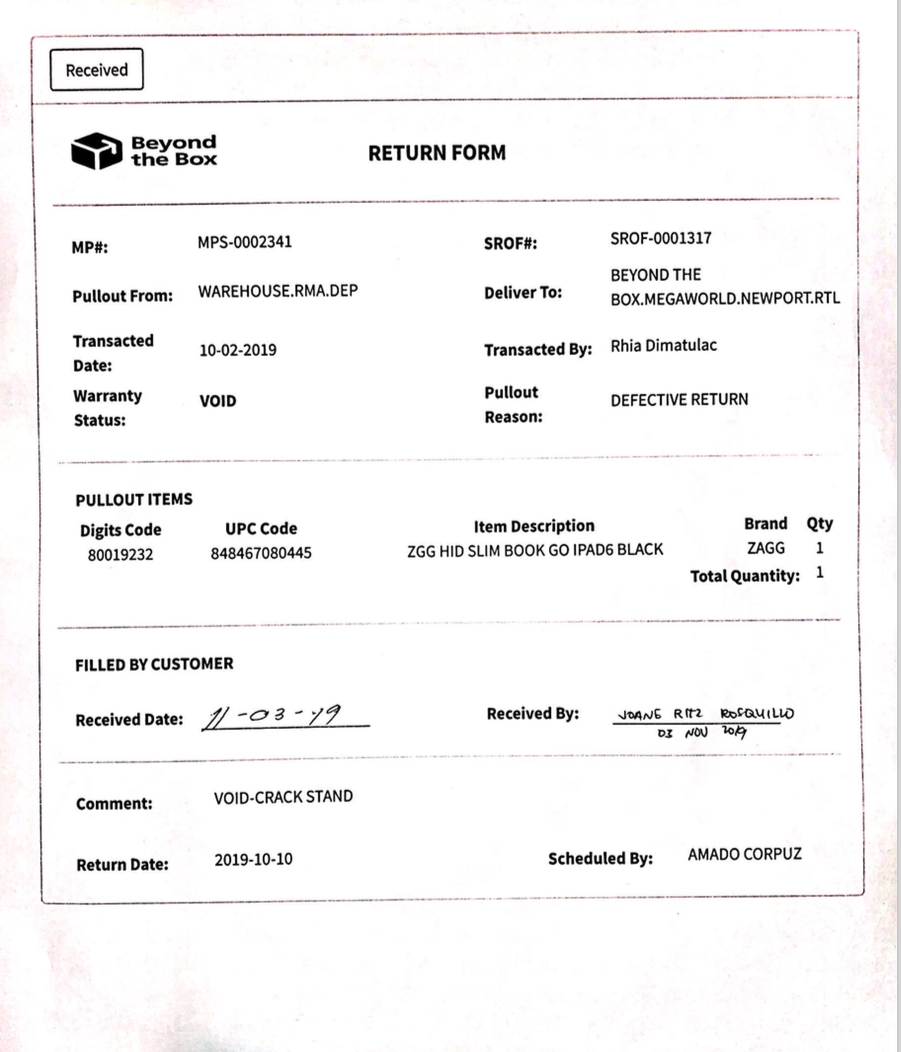 Received
Beyond
the Box
RETURN FORM
MP#: MPS-0002341 SROF#: SROF-0001317
Pullout From: WAREHOUSE.RMA.DEP Deliver To: BEYOND THE
BOX.MEGAWORLD.NEWPORT.RTL
Transacted
Date: 10-02-2019 Transacted By: Rhia Dimatulac
Warranty
Status: VOID Pullout
Reason: DEFECTIVE RETURN
PULLOUT ITEMS
Digits Code UPC Code Item Description Brand Qty
80019232 848467080445 ZGG HID SLIM BOOK GO IPAD6 BLACK ZAGG 1
Total Quantity: 1
FILLED BY CUSTOMER
Received Date: 11-03-19 Received By: JOANE RITZ ROSQUILLO
03 NOV 2019
Comment: VOID-CRACK STAND
Return Date: 2019-10-10 Scheduled By: AMADO CORPUZ